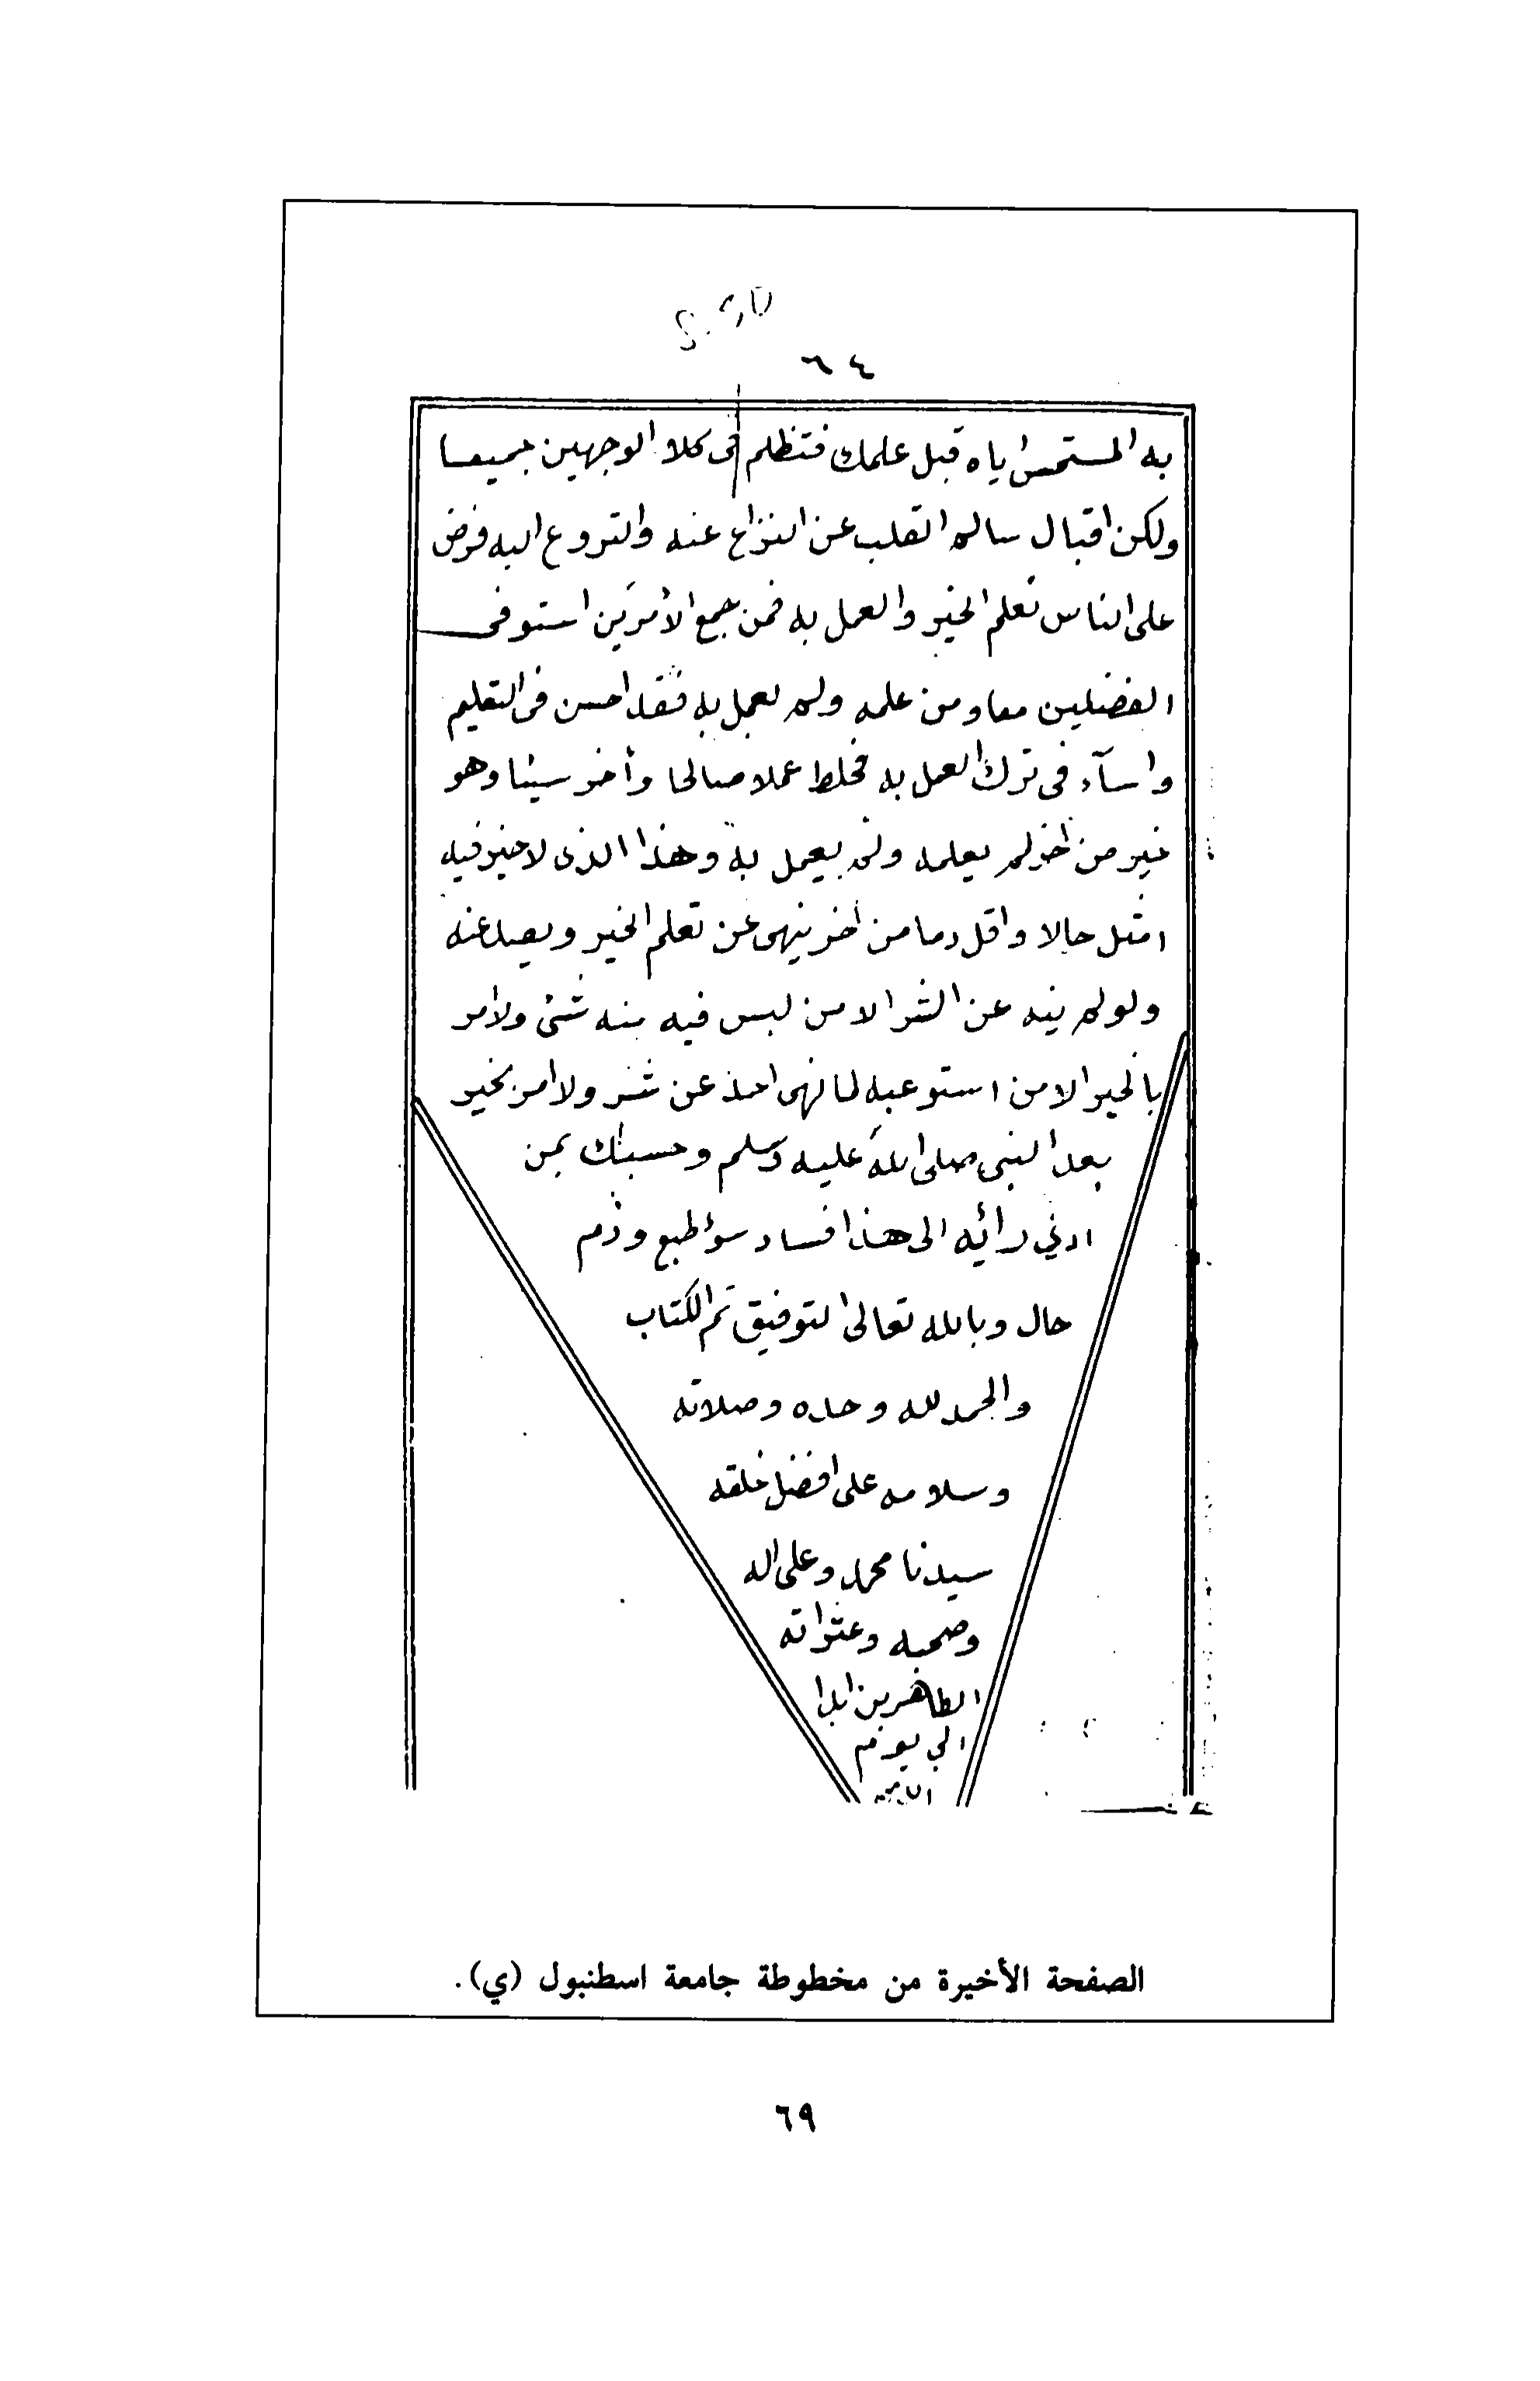 ٦٤
به المستحسن اياه قبل علمك فتظلم فى كلا الوجهين جميعا
ولكن اقبال سالم القلب عن النزاع عنه والتروع اليه فرض
على الناس تعلم الخير والعمل به فمن جمع الأمرين استوفى
الفضلين معا ومن علمه ولم يعمل به فقد احسن فى التعليم
واسآء فى ترك العمل به فخلط عملا صالحا وأخر سيئا وهو
خير من اخر لم يعلمه ولم يعمل به وهذا الذى لا خير فيه
امثل حالا واقل دما من اخر ينهى عن تعلم الخير ويصد عنه
ولو لم ينه عن الشر الا من ليس فيه منه شئ ولا امر
بالخير الا من استوعبه لما نهى احد عن شر ولا امر بخير
بعد النبى صلى الله عليه وسلم وحسبك بمن
ادني رائيه الى هذا فساد سؤ طبع وذم
حال وبالله تعالى التوفيق تم الكتاب
والحمد لله وحده وصلاته
وسلامه على افضل خلقه
سيدنا محمد وعلى اله
وصحبه وعتراته
الطاهرين ابدا
الى يوم
الصفحة الأخيرة من مخطوطة جامعة اسطنبول (ي).
٦٩